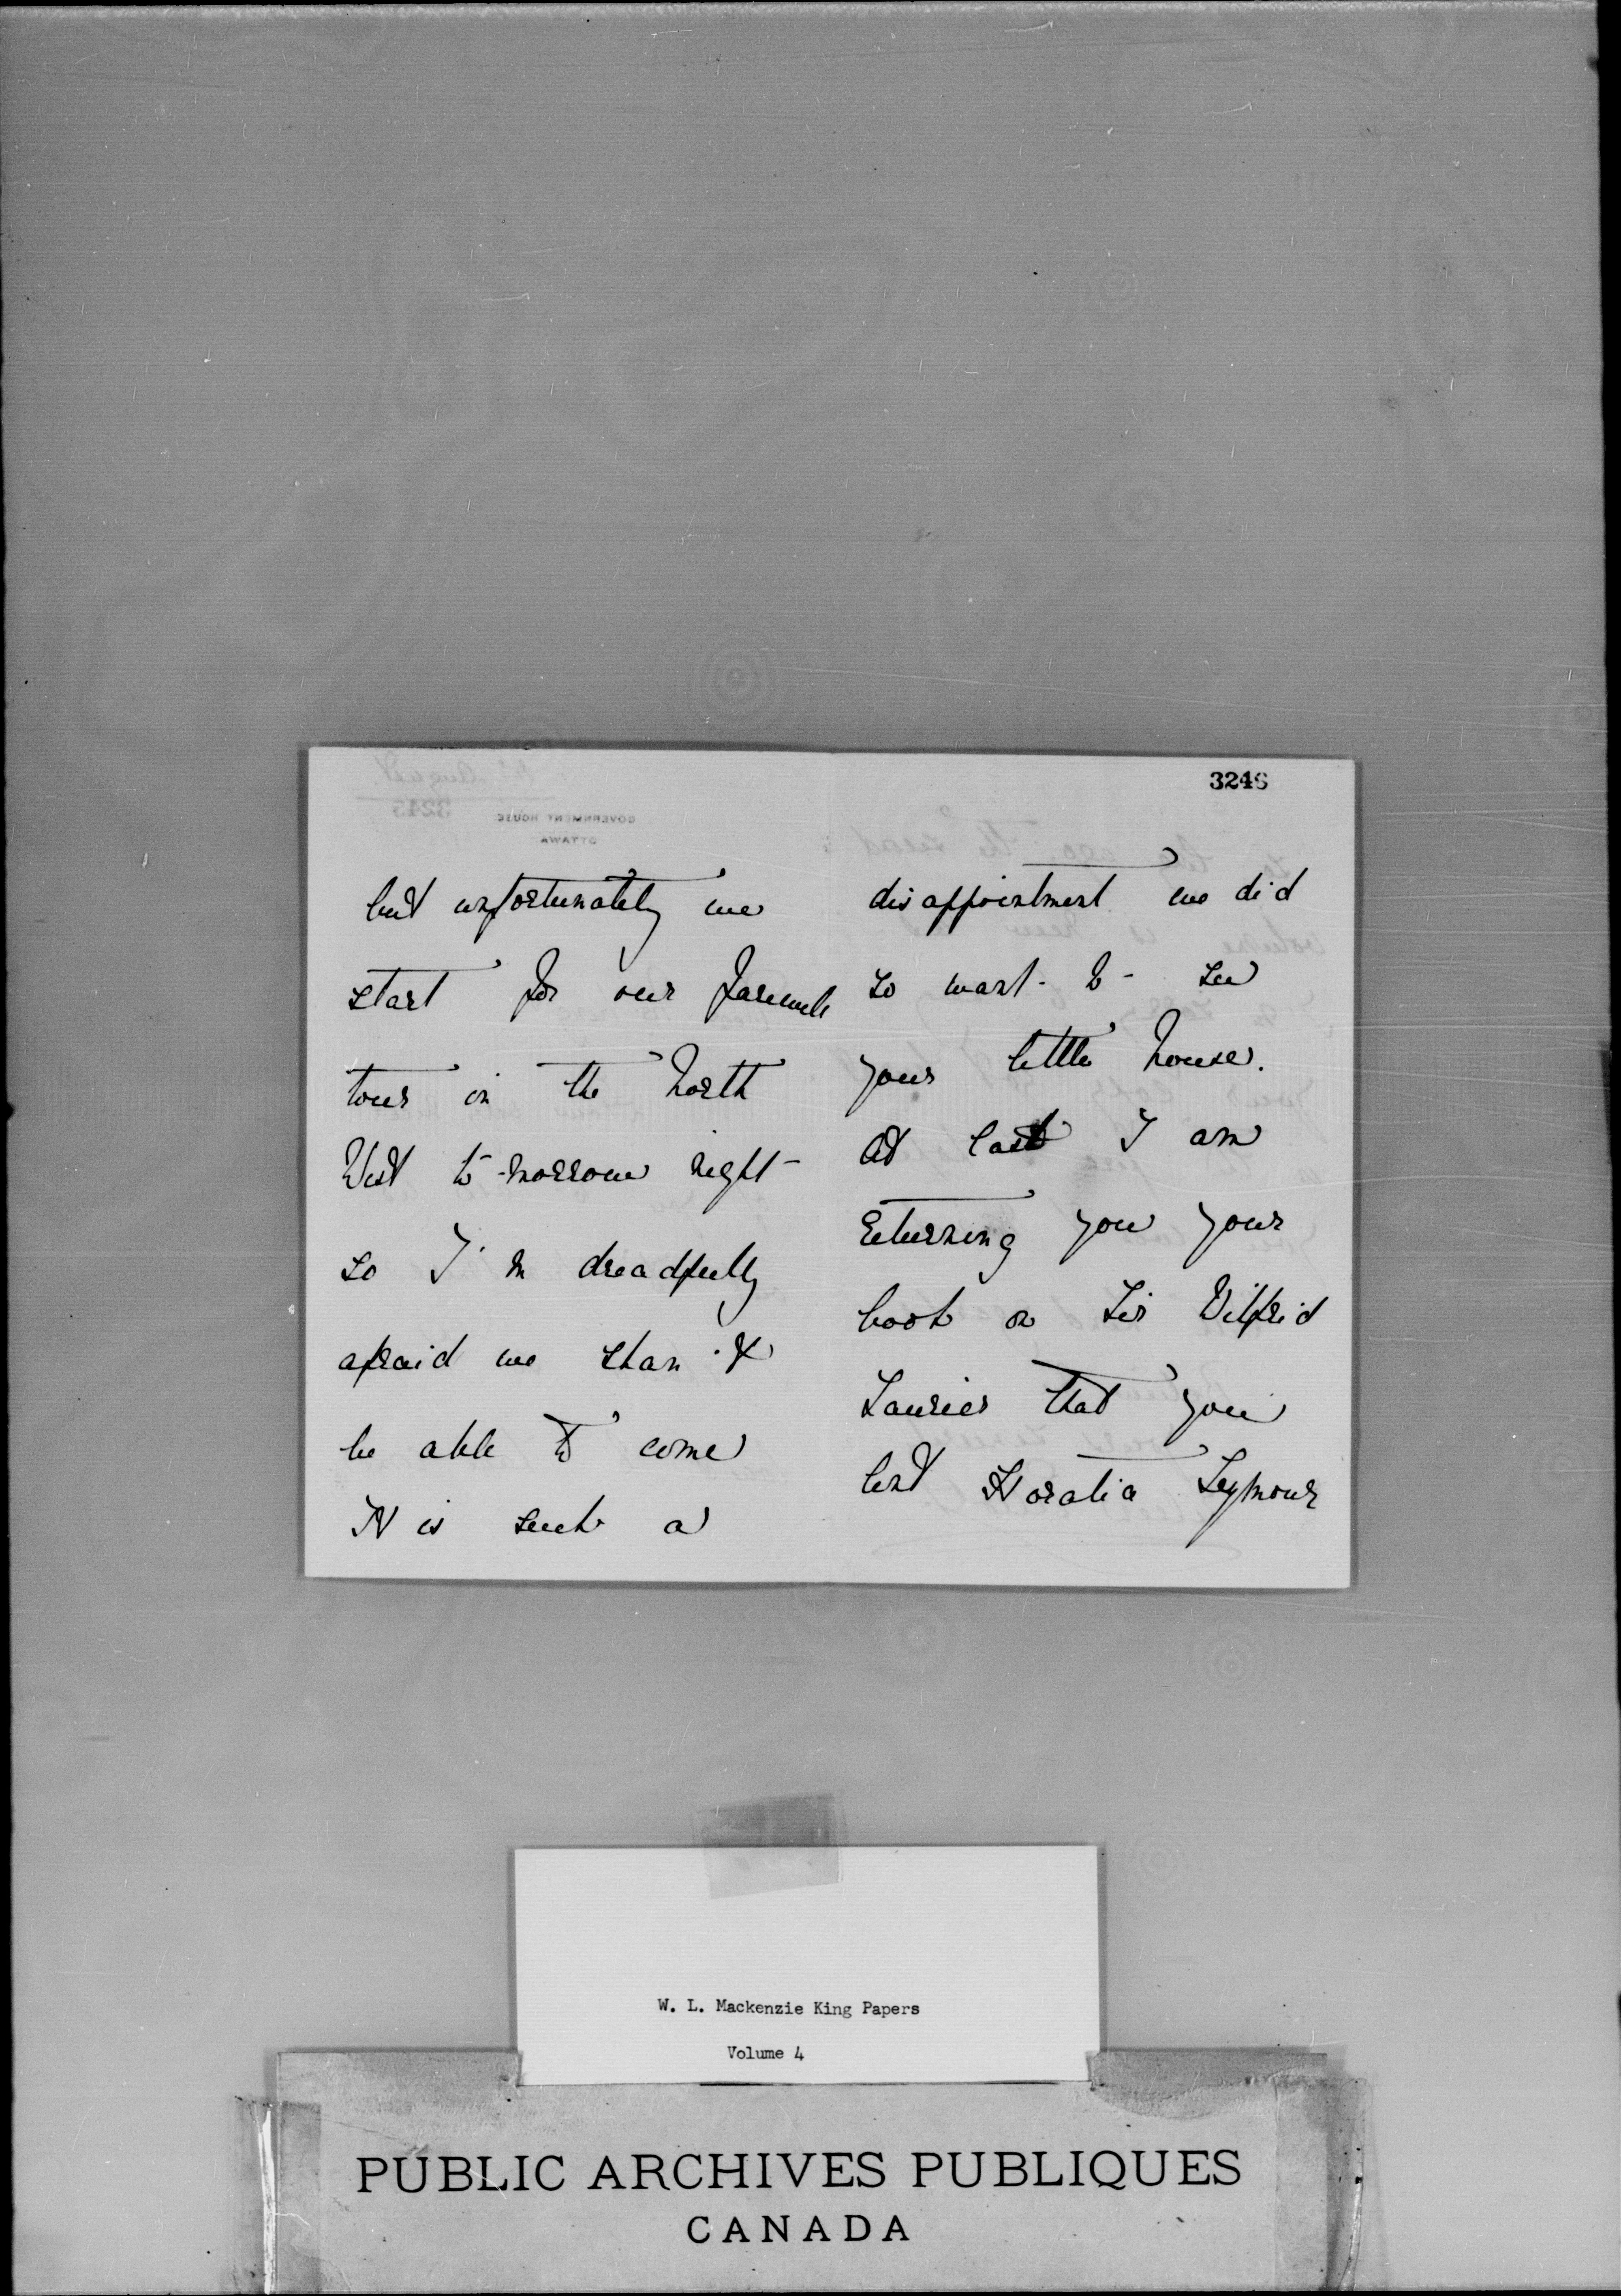 3246
but unfortunately we
start for our farewell
tour in the North
West to-morrow night -
so I'm dreadfully
afraid we shan't
be able to come
It is such a
disappointment we did
so want to see
your little house.
At last I am
returning you your
book on Sir Wilfrid
Laurier that you
lent Horatia Seymour
W. L. Mackenzie King Papers
Volume 4
PUBLIC ARCHIVES PUBLIQUES
CANADA